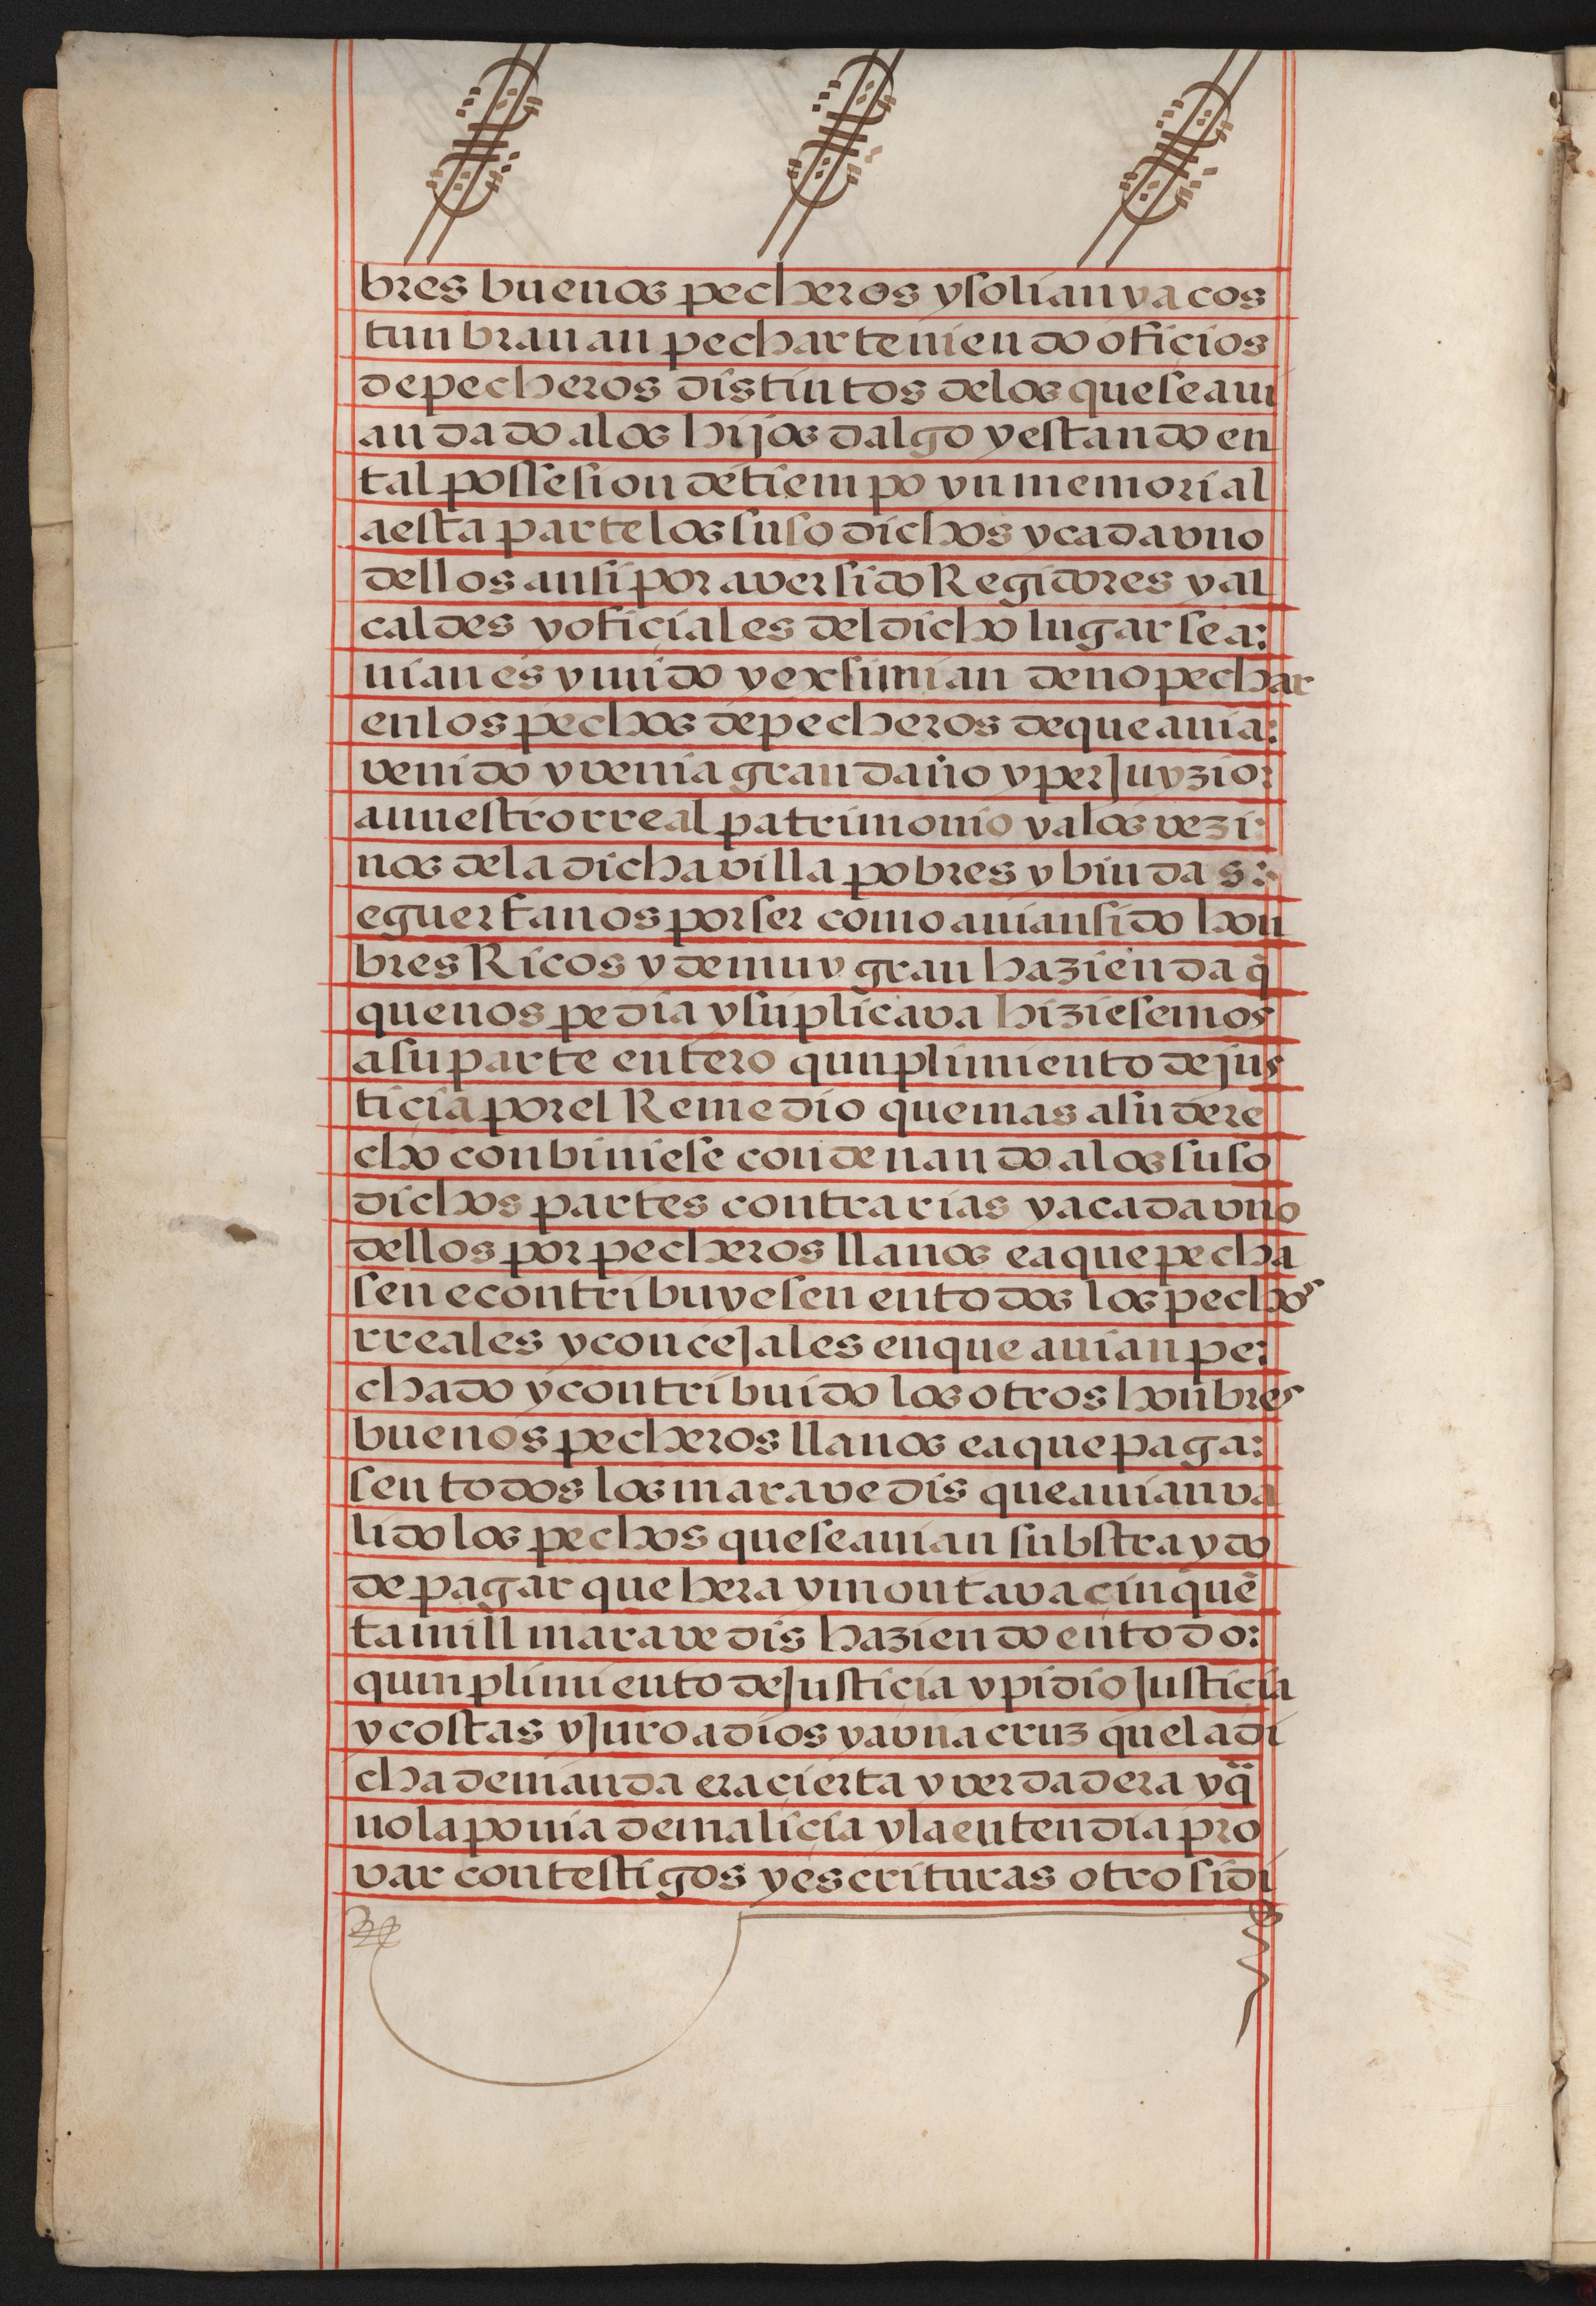 bres buenos pecheros y solian y acos
tunbrauan pechar teniendo oficios
de pecheros distintos de los que se aui
an dado a los hijos dalgo y estando en
tal possesion de tiempo ynmemorial
a esta parte los suso dichos y cada vno
dellos ansi por aver sido Regidores y al
caldes y oficiales del dicho lugar se a:
uian esymido y exsimian de no pechar
en los pechos de pecheros de que auia:
venido y venia gran daño y perJuyzio:
a nuestro rreal patrimonio y a los vezi:
nos de la dicha villa pobres y biudas:
e guerfanos por ser como auian sido hon
bres Ricos y de muy gran hazienda q̃
que nos pedia y suplicava hiziesemos
a su parte entero qunplimiento de jus
ticia por el Remedio que mas a su dere
cho conbiniese condenando a los suso
dichos partes contrarias y a cada vno
dellos por pecheros llanos e a que pecha
sen e contribuyesen en todos los pechos
rreales y conceJales en que auian pe:
chado y contribuido los otros honbres
buenos pecheros llanos e a que paga:
sen todos los maravedis que auian va
lido los pechos que se auian substraydo
de pagar que hera y montava çinquẽ
ta mill maravedis haziendo en todo:
qumplimiento de Justiçia y pidio Justiçia
y costas y Juro a dios y a vna cruz que la di
cha demanda era cierta y verdadera y q̃
no la ponia de maliçia y la entendia pro
var con testigos y escrituras otro si di